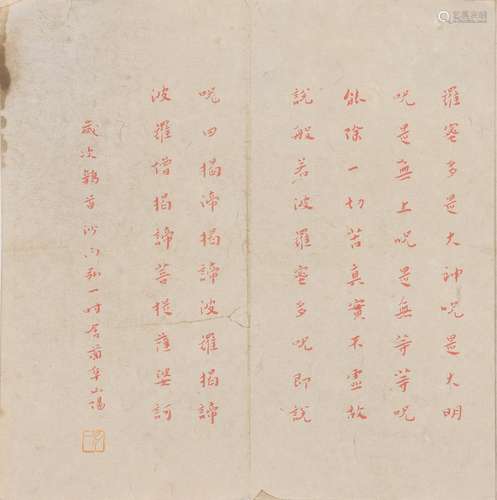 羅蜜多是大神呪是大明
呪是無上呪是無等等呪
能除一切苦真實不虛故
說般若波羅蜜多呪即說
呪曰揭諦揭諦波羅揭諦
波羅僧揭諦菩提薩婆訶
歲次鶉首沙門弘一時山陽